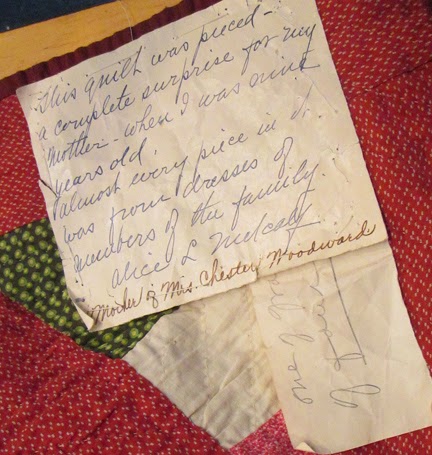 This quilt was pieced -
a complete surprise for my
Mother - when I was nine
years old.
almost every piece in it
was from dresses of
members of the family.
Alice L Metcalf
Mother of Mrs. Chester Woodward
one J